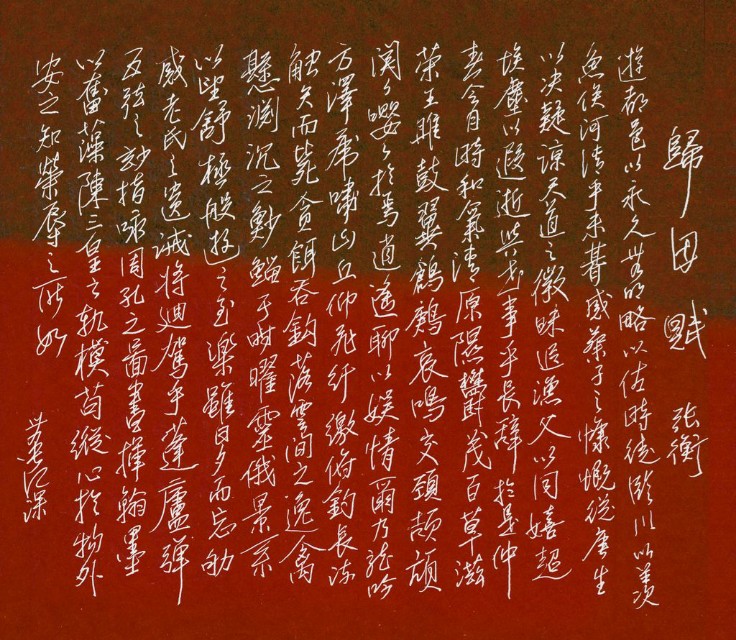 歸田賦 张衡
遊都邑以永久無明略以佐時徒臨川以羡
魚俟河清乎未朞感蔡子之慷慨從唐生
以决疑諒天道之微昧追漁父以同嬉超
埃塵以遐逝與世事乎長辞於是仲
春令月時和氣清原隰鬱茂百草滋
荣王雎鼓翼鶬鶊哀鳴交頸頡頏
関々嚶々於焉逍遥聊以娱情爾乃龍吟
方澤虎嘯山丘仰飛纤繳俯釣長流
触矢而毙貪餌吞鈎落雲間之逸禽
懸渊沉之魦鰡于时曜靈俄景系
以望舒極般遊之至樂雖日夕而忘劬
感老氏之遺诫将迴駕乎蓬廬彈
五弦之妙指咏周孔之圖書揮翰墨
以奮藻陳三皇之軌模苟縱心於物外
安之知榮辱之所如